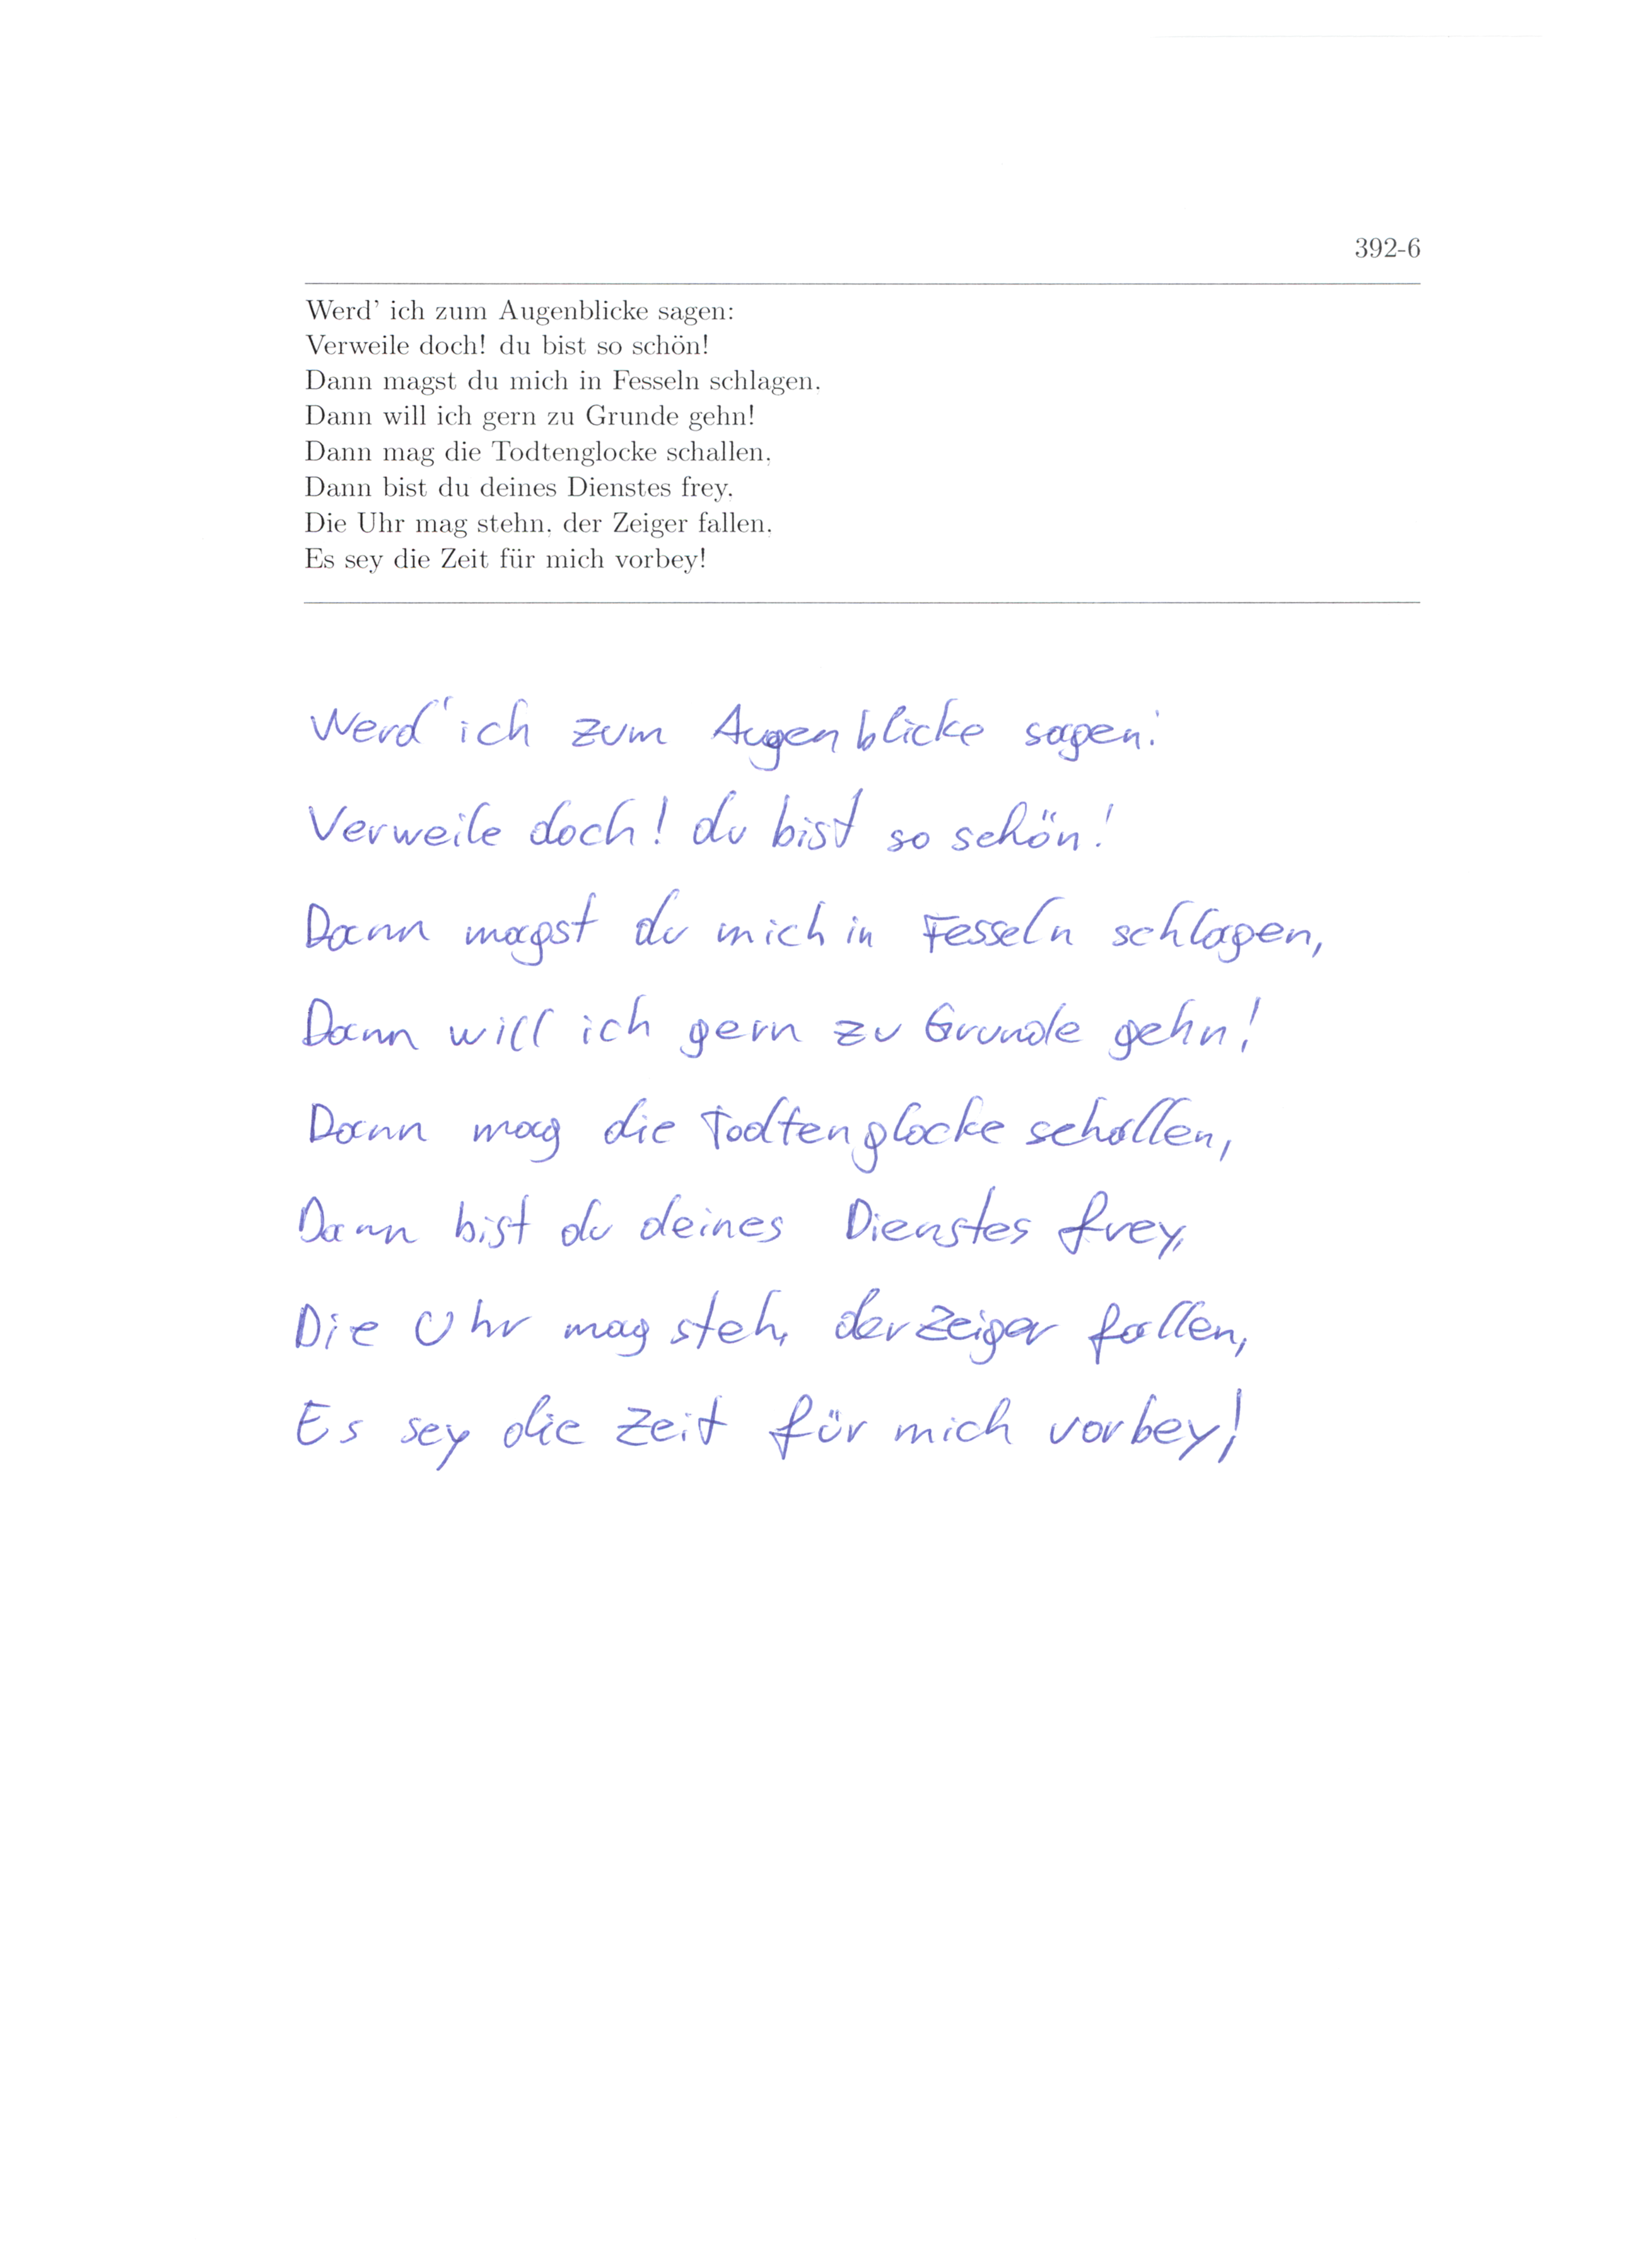 392-6
Werd' ich zum Augenblicke sagen:
Verweile doch! du bist so schön!
Dann magst du mich in Fesseln schlagen,
Dann will ich gern zu Grunde gehn!
Dann mag die Todtenglocke schallen,
Dann bist du deines Dienstes frey,
Die Uhr mag stehn, der Zeiger fallen,
Es sey die Zeit für mich vorbey!
Werd' ich zum Augenblicke sagen:
Verweile doch! du bist so schön!
Dann magst du mich in Fesseln schlagen,
Dann will ich gern zu Grunde gehn!
Dann mag die Todtenglocke schallen,
Dann bist du deines Dienstes frey,
Die Uhr mag steh, der Zeiger fallen,
Es sey die Zeit für mich vorbey!